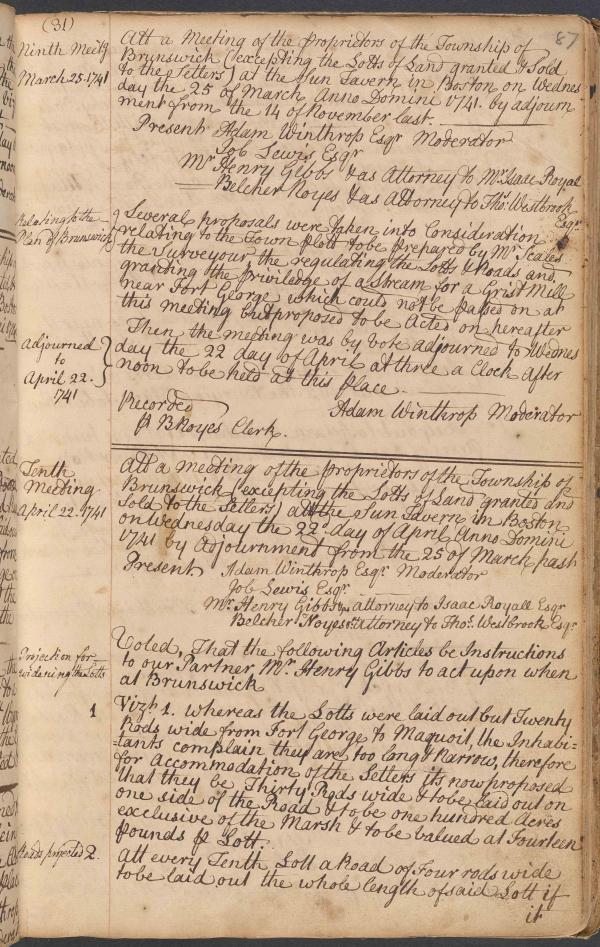 (31)
87
Ninth Meetg
March 25. 1741
Att a Meeting of the Proprietors of the Township of
Brunswick (excepting the Lotts of Land granted & Sold
to the Setlers) at the Sun Tavern in Boston on Wednes
day the 25 of March Anno Domini 1741. by adjourn
ment from the 14 of November last.
Present Adam Winthrop Esqr Moderator
Job Lewis Esqr
Mr Henry Gibbs & as Attorney to Mr Isaac Royal
Belcher Noyes & as Attorney to Tho: Westbrook
Esqr
Relating to the
Plan of Brunswick
Several proposals were taken into Consideration
relating to the Town Plott to be prepared by Mr Scales
the Surveyour the regulating the Lotts & Roads and
granting the Priviledge of a Stream for a Grist Mill
near Fort George which could not be passed on at
this meeting but proposed to be Acted on hereafter
Adjourned
to
April 22.
1741
Then the meeting was by vote adjourned to Wednes
day the 22 day of April at three a Clock after
noon to be held at this place.
Recorded
Adam Winthrop Moderator
P BNoyes Clerk.
Tenth
Meeting
April 22. 1741
Att a meeting of the proprietors of the Township of
Brunswick (excepting the Lotts of Land granted and
Sold to the Setlers) att the Sun Tavern in Boston
on Wednesday the 22d day of April Anno Domini
1741 by Adjournment from the 25 of March past
Present. Adam Winthrop Esqr Moderator
Job Lewis Esqr
Mr. Henry Gibbs & as attorney to Isaac Royall Esqr
Belcher Noyes & as Attorney to Thos. Westbrook Esqr
Projection for
widening the Lotts
Voted, That the following Articles be Instructions
to our Partner Mr Henry Gibbs to act upon when
at Brunswick
1
Vizt 1. whereas the Lotts were laid out but Twenty
Rods wide from Fort George to Maquoit, the Inhabi=
=tants complain they are too long & Narrow, therefore
for Accommodation of the Setlers its now proposed
that they be Thirty Rods wide & to be laid out on
one side of the Road & to be one hundred Acres
exclusive of the Marsh & to be valued at Fourteen
pounds P Lott.
Roads projected 2.
Att every Tenth Lott a Road of Four rods wide
to be laid out the whole length of said Lott if
it